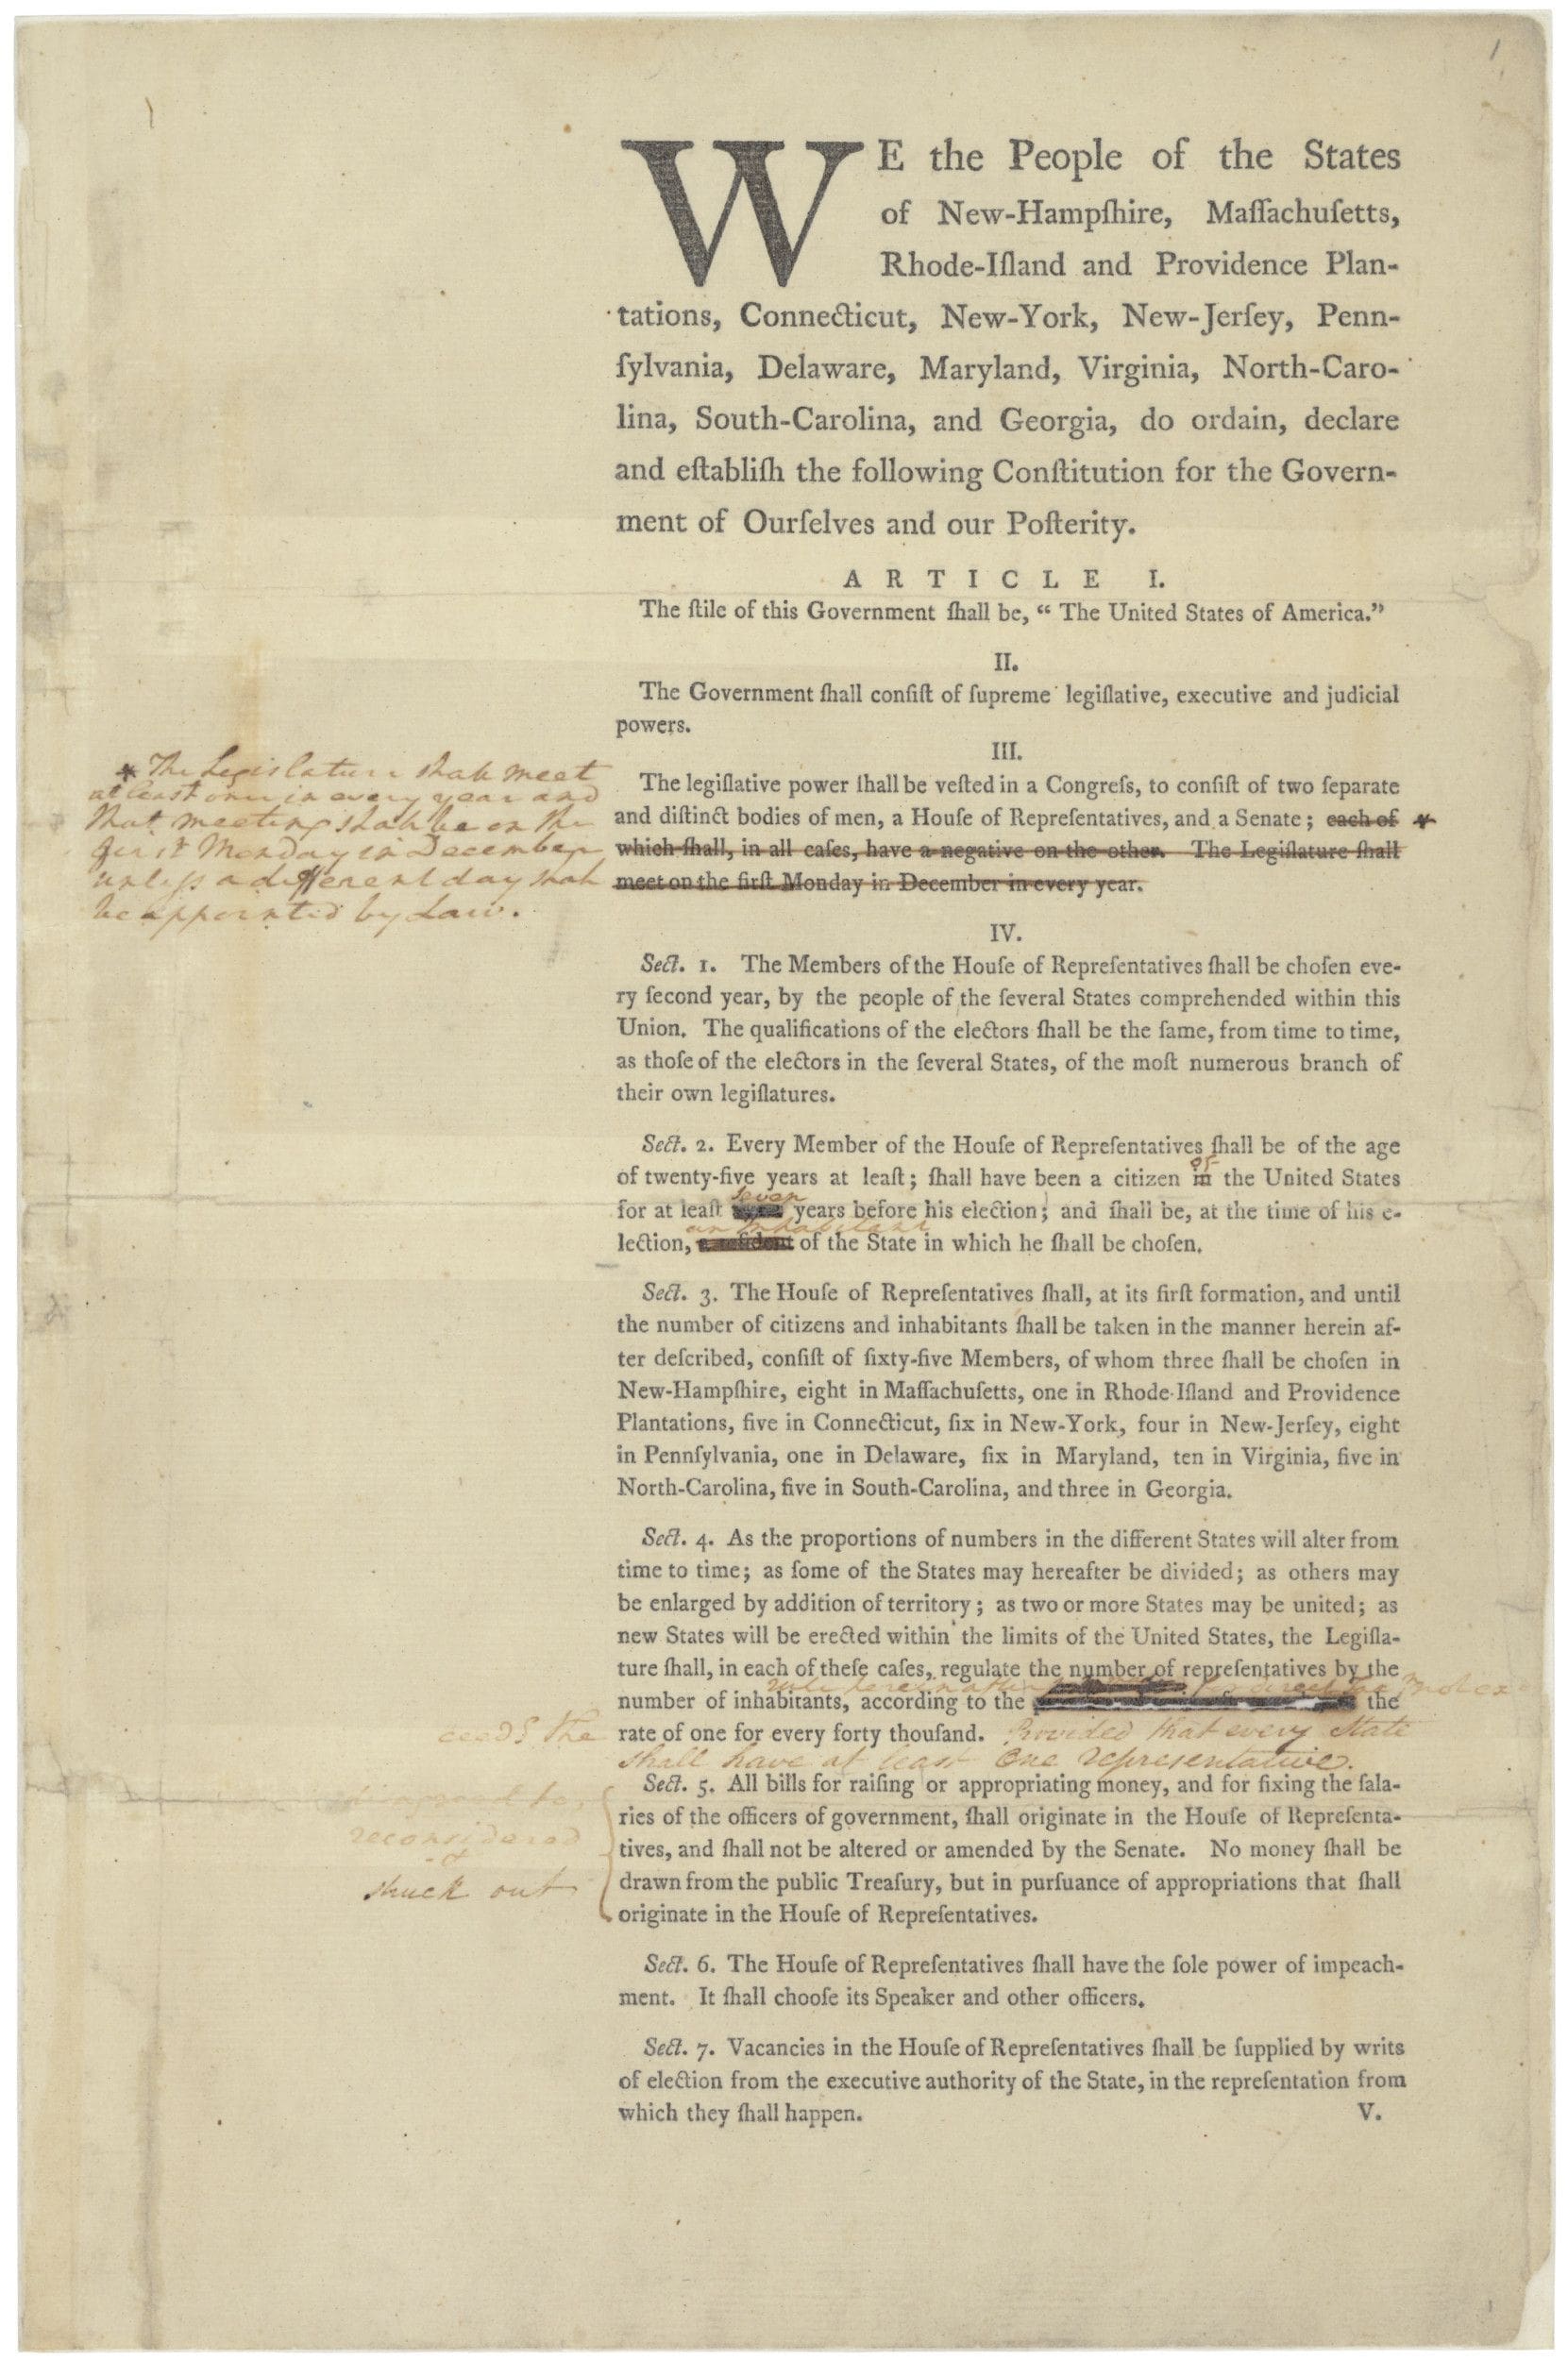 1
WE the People of the States
of New-Hampſhire, Maſſachuſetts,
Rhode-Iſland and Providence Plan-
tations, Connecticut, New-York, New-Jerſey, Penn-
ſylvania, Delaware, Maryland, Virginia, North-Caro-
lina, South-Carolina, and Georgia, do ordain, declare
and eſtabliſh the following Conſtitution for the Govern-
ment of Ourſelves and our Poſterity.
ARTICLE I.
The ſtile of this Government ſhall be, “ The United States of America.”
II.
The Government ſhall conſiſt of ſupreme legiſlative, executive and judicial
powers.
III.
The legiſlative power ſhall be veſted in a Congreſs, to conſiſt of two ſeparate
and diſtinct bodies of men, a Houſe of Repreſentatives, and a Senate; each of *
which ſhall, in all caſes, have a negative on the other. The Legiſlature ſhall
meet on the firſt Monday in December in every year.
* The Legislature shall meet
at least once in every year and
that meeting shall be on the
first Monday in December
unless a different day shall
be appointed by Law.
IV.
Sect. 1. The Members of the Houſe of Repreſentatives ſhall be choſen eve-
ry ſecond year, by the people of the ſeveral States comprehended within this
Union. The qualifications of the electors ſhall be the ſame, from time to time,
as thoſe of the electors in the ſeveral States, of the moſt numerous branch of
their own legiſlatures.
Sect. 2. Every Member of the Houſe of Repreſentatives ſhall be of the age
of
of twenty-five years at leaſt; ſhall have been a citizen in the United States
seven
for at leaſt years before his election; and ſhall be, at the time of his e-
an inhabitant
lection, of the State in which he ſhall be choſen.
Sect. 3. The Houſe of Repreſentatives ſhall, at its firſt formation, and until
the number of citizens and inhabitants ſhall be taken in the manner herein af-
ter deſcribed, conſiſt of ſixty-five Members, of whom three ſhall be choſen in
New-Hampſhire, eight in Maſſachuſetts, one in Rhode-Iſland and Providence
Plantations, five in Connecticut, ſix in New-York, four in New-Jerſey, eight
in Pennſylvania, one in Delaware, ſix in Maryland, ten in Virginia, five in
North-Carolina, five in South-Carolina, and three in Georgia.
Sect. 4. As the proportions of numbers in the different States will alter from
time to time; as ſome of the States may hereafter be divided; as others may
be enlarged by addition of territory; as two or more States may be united; as
new States will be erected within the limits of the United States, the Legiſla-
ture ſhall, in each of theſe caſes, regulate the number of repreſentatives by the
rule hereinafter not ex
number of inhabitants, according to the the
ceeds the
rate of one for every forty thouſand. Provided that every State
shall have at least One representative.
Sect. 5. All bills for raiſing or appropriating money, and for fixing the ſala-
ries of the officers of government, ſhall originate in the Houſe of Repreſenta-
tives, and ſhall not be altered or amended by the Senate. No money ſhall be
drawn from the public Treaſury, but in purſuance of appropriations that ſhall
originate in the Houſe of Repreſentatives.
reconsidered
struck out
Sect. 6. The Houſe of Repreſentatives ſhall have the ſole power of impeach-
ment. It ſhall chooſe its Speaker and other officers.
Sect. 7. Vacancies in the Houſe of Repreſentatives ſhall be ſupplied by writs
of election from the executive authority of the State, in the repreſentation from
which they ſhall happen.
V.